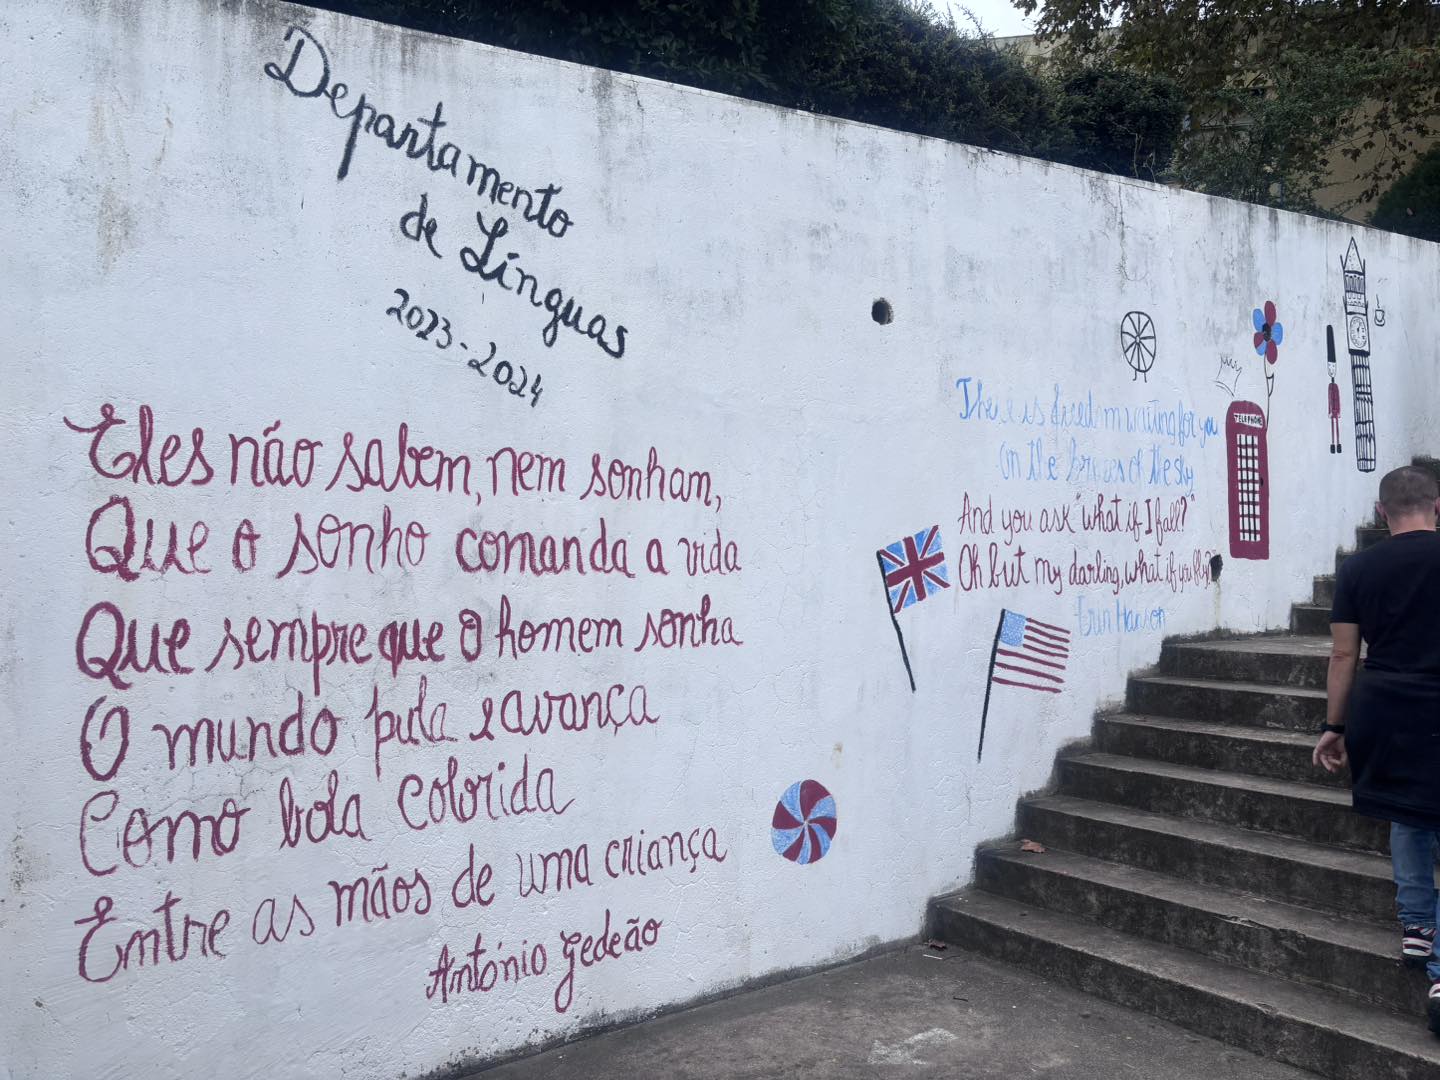 Departamento
de Línguas
2023-2024
Eles não sabem, nem sonham,
Que o sonho comanda a vida
Que sempre que o homem sonha
O mundo pula e avança
Como bola colorida
Entre as mãos de uma criança
António Gedeão
There is freedom waiting for you
On the brezes of the sky
And you ask "what if I fall?"
Oh but my darling, what if you fly?
Erin Hanson
TELEPHONE